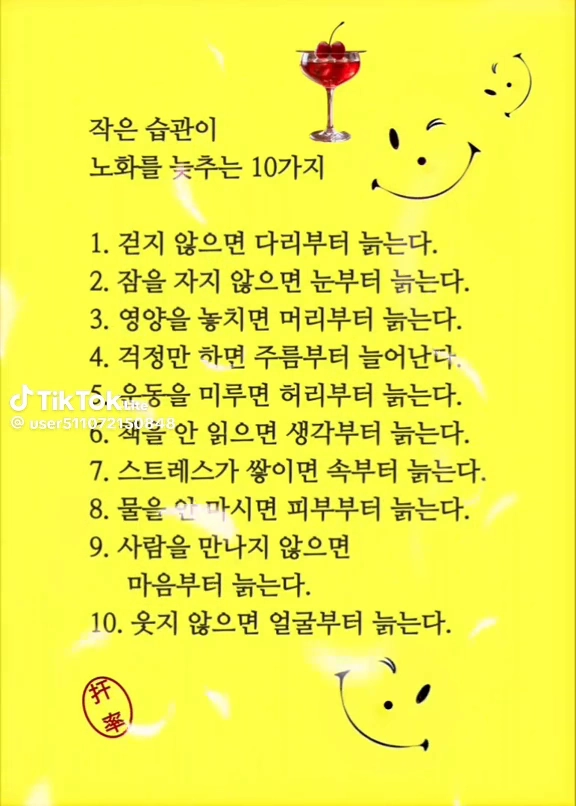 작은 습관이
노화를 늦추는 10가지
1. 걷지 않으면 다리부터 늙는다.
2. 잠을 자지 않으면 눈부터 늙는다.
3. 영양을 놓치면 머리부터 늙는다.
4. 걱정만 하면 주름부터 늘어난다.
5. 운동을 미루면 허리부터 늙는다.
TikTok
@ user511072150848
6. 책을 안 읽으면 생각부터 늙는다.
7. 스트레스가 쌓이면 속부터 늙는다.
8. 물을 안 마시면 피부부터 늙는다.
9. 사람을 만나지 않으면
마음부터 늙는다.
10. 웃지 않으면 얼굴부터 늙는다.